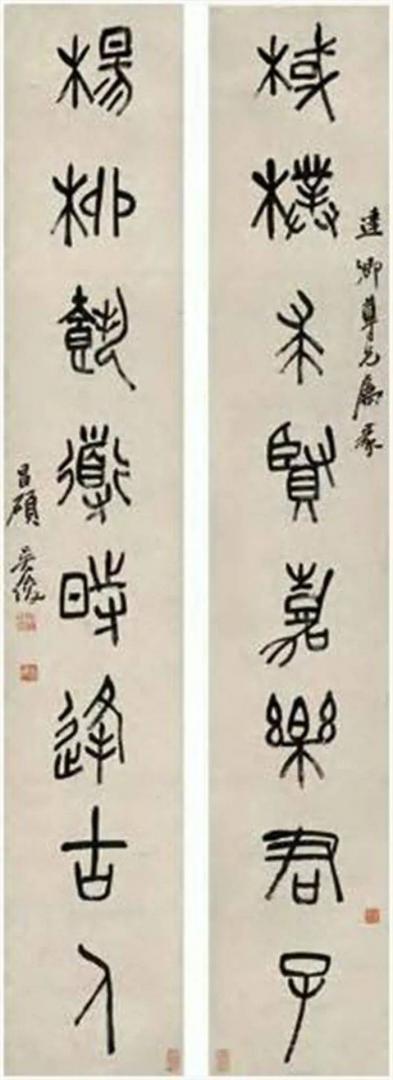 達卿尊兄屬篆
棫樸賢嘉樂君子
楊柳導時逢古人
昌碩吳俊